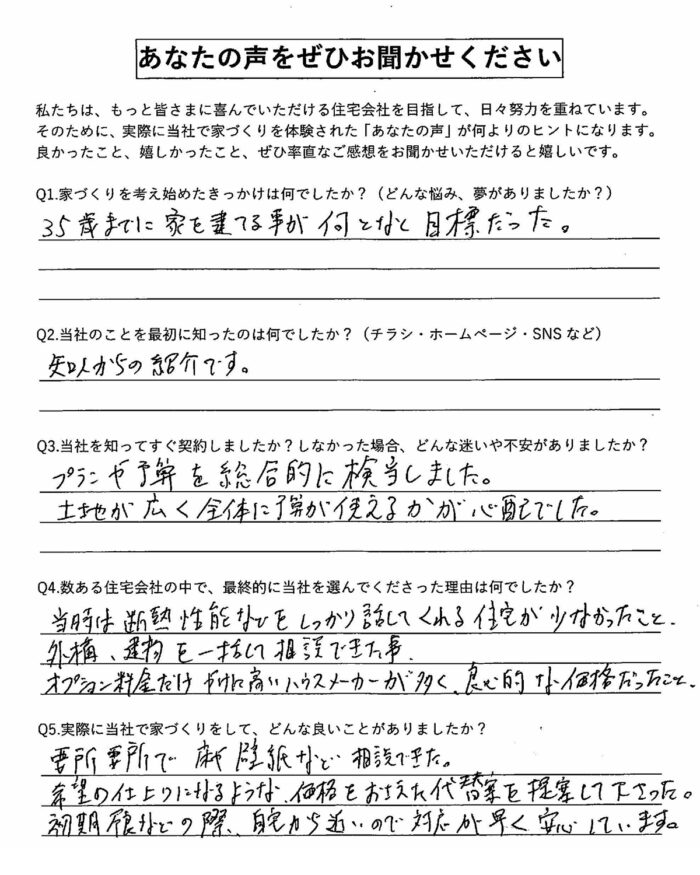 あなたの声をぜひお聞かせください
私たちは、もっと皆さまに喜んでいただける住宅会社を目指して、日々努力を重ねています。
そのために、実際に当社で家づくりを体験された「あなたの声」が何よりのヒントになります。
良かったこと、嬉しかったこと、ぜひ率直なご感想をお聞かせいただけると嬉しいです。
Q1.家づくりを考え始めたきっかけは何でしたか？（どんな悩み、夢がありましたか？）
35歳までに家を建てる事が何となく目標だった。
Q2.当社のことを最初に知ったのは何でしたか？（チラシ・ホームページ・SNSなど）
知人からの紹介です。
Q3.当社を知ってすぐ契約しましたか？しなかった場合、どんな迷いや不安がありましたか？
プランや予算を総合的に検討しました。
土地が広く全体に予算が使えるかが心配でした。
Q4.数ある住宅会社の中で、最終的に当社を選んでくださった理由は何でしたか？
当時は断熱性能などをしっかり話してくれる住宅が少なかったこと.
外構、建物を一括して相談できた事.
オプション料金だけやけに高いハウスメーカーが多く、良心的な価格だったこと.
Q5.実際に当社で家づくりをして、どんな良いことがありましたか？
要所要所で床や壁紙など相談できた。
希望の仕上りになるような、価格をおさえた代替案を提案して下さった。
初期不良などの際、自宅から近いので対応が早く安心しています。